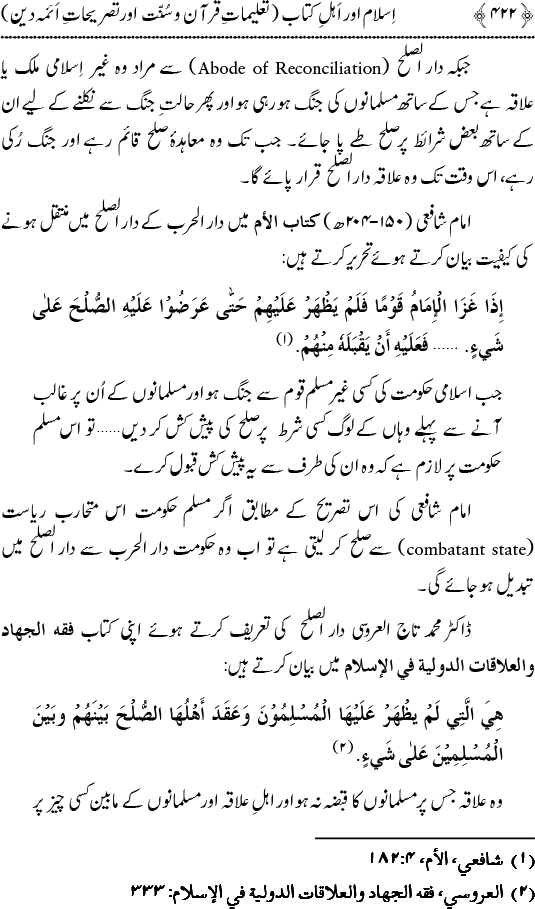 ﴿۴۲۲﴾ اِسلام اور اَہلِ کتاب (تعلیماتِ قرآن و سُنّت اور تصریحاتِ اَئمہ دین)
جبکہ دار الصلح (Abode of Reconciliation) سے مراد وہ غیر اِسلامی ملک یا
علاقہ ہے جس کے ساتھ مسلمانوں کی جنگ ہو رہی ہو اور پھر حالتِ جنگ سے نکلنے کے لیے ان
کے ساتھ بعض شرائط پر صلح طے پا جائے۔ جب تک وہ معاہدۂ صلح قائم رہے اور جنگ رُکی
رہے، اس وقت تک وہ علاقہ دار الصلح قرار پائے گا۔
امام شافعی (۱۵۰-۲۰۴ھ) کتاب الأم میں دار الحرب کے دار الصلح میں منتقل ہونے
کی کیفیت بیان کرتے ہوئے تحریر کرتے ہیں:
إِذَا غَزَا الْإِمَامُ قَوْمًا فَلَمْ يَظْهَرْ عَلَيْهِمْ حَتّٰى عَرَضُوْا عَلَيْهِ الصُّلْحَ عَلىٰ
شَيءٍ. ...... فَعَلَيْهِ أَنْ يَقْبَلَهُ مِنْهُمْ.(۱)
جب اسلامی حکومت کی کسی غیر مسلم قوم سے جنگ ہو اور مسلمانوں کے اُن پر غالب
آنے سے پہلے وہاں کے لوگ کسی شرط پر صلح کی پیش کش کر دیں...... تو اس مسلم
حکومت پر لازم ہے کہ وہ ان کی طرف سے یہ پیش کش قبول کرے۔
امام شافعی کی اس تصریح کے مطابق اگر مسلم حکومت اس متحارب ریاست
(combatant state) سے صلح کر لیتی ہے تو اب وہ حکومت دار الحرب سے دار الصلح میں
تبدیل ہو جائے گی۔
ڈاکٹر محمد تاج العروسی دار الصلح کی تعریف کرتے ہوئے اپنی کتاب فقه الجهاد
والعلاقات الدولية في الإسلام میں بیان کرتے ہیں:
هِيَ الَّتِي لَمْ يَظْهَرْ عَلَيْهَا الْمُسْلِمُوْنَ وَعَقَدَ أَهْلُهَا الصُّلْحَ بَيْنَهُمْ وبَيْنَ
الْمُسْلِمِيْنَ عَلىٰ شَيءٍ.(۲)
وہ علاقہ جس پر مسلمانوں کا قبضہ نہ ہو اور اہلِ علاقہ اور مسلمانوں کے مابین کسی چیز پر
(۱) شافعي، الأم، ۴: ۱۸۲
(۲) العروسي، فقه الجهاد والعلاقات الدولية في الإسلام: ۳۳۳